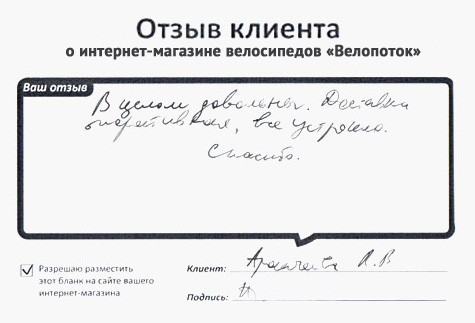 Отзыв клиента
о интернет-магазине велосипедов «Велопоток»
Ваш отзыв
В целом довольны. Доставка
оперативная, все устроило.
Спасибо.
Разрешаю разместить
этот бланк на сайте вашего
интернет-магазина
Клиент: А.В
Подпись: